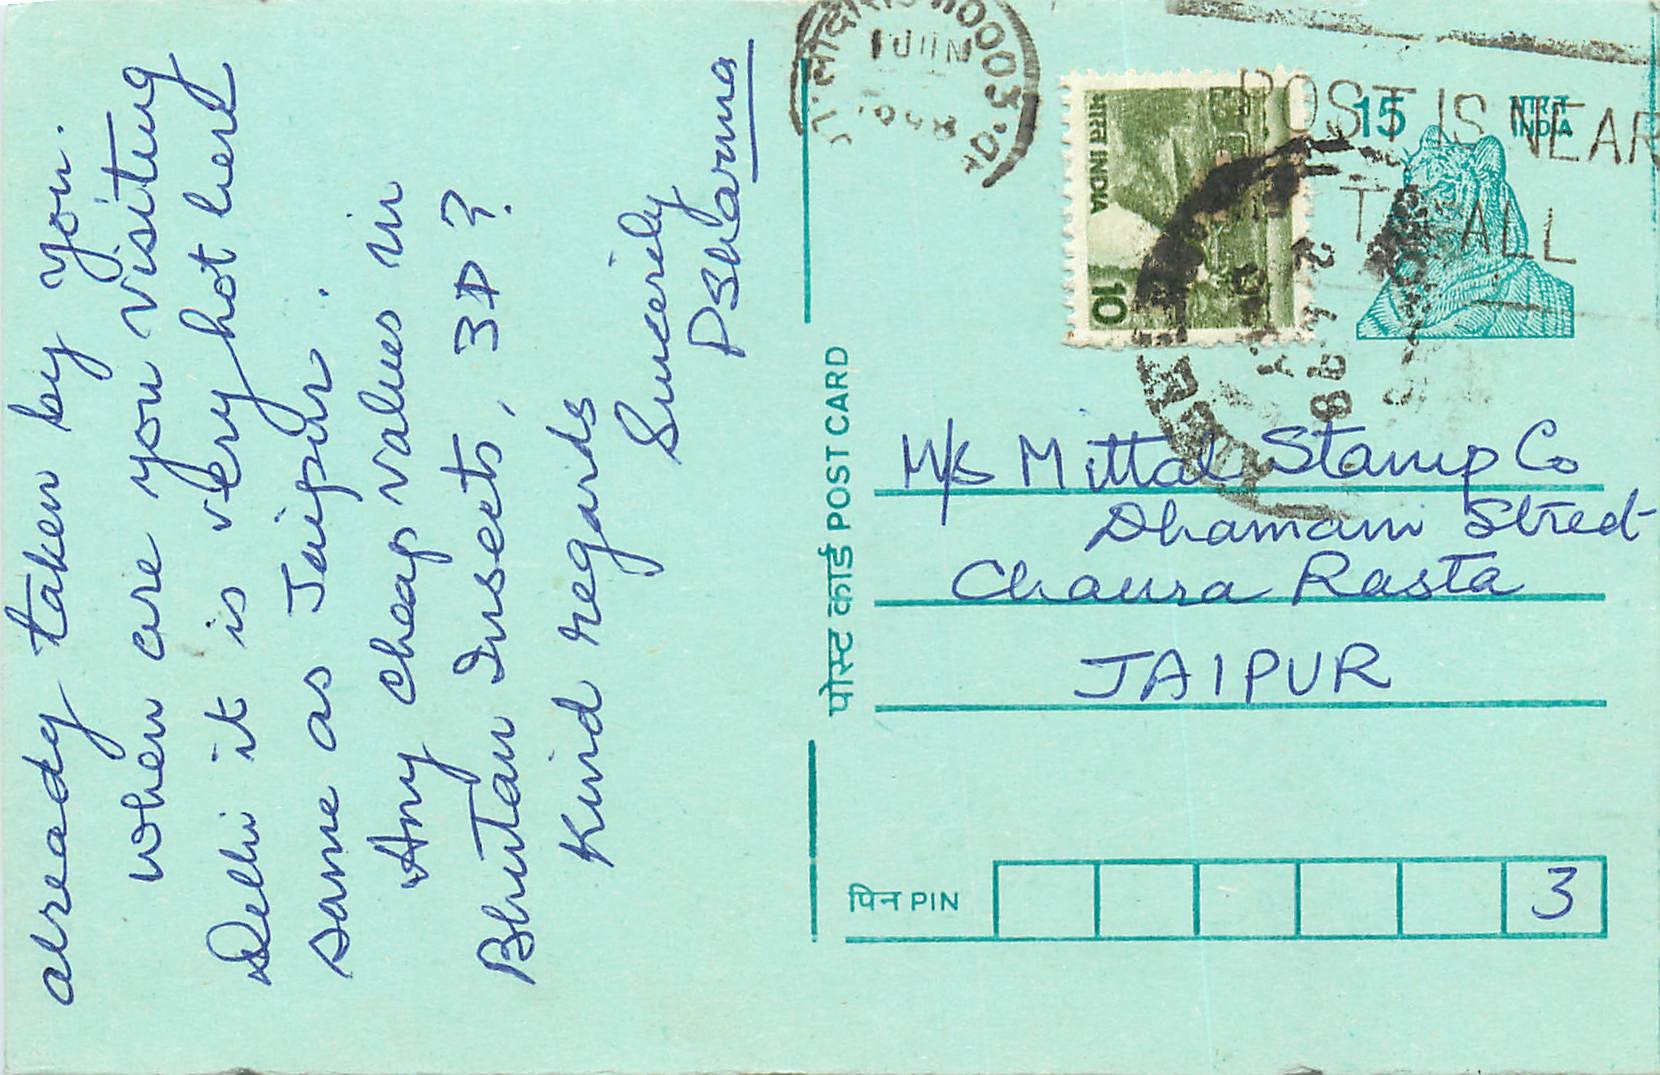 already taken by you.
when are you visiting
Delhi it is very hot here
same as Jaipur.
Any cheap values in
Bhutan Insects, 3D?
Kind regards
Sincerely
PSharma
पोस्ट कार्ड POST CARD
110003
1 JUN
भारत INDIA
10
POST IS NEAR
TO ALL
15
भारत
INDIA
M/s Mittal Stamp Co
Dhamani Street
Chaura Rasta
JAIPUR
पिन PIN
3